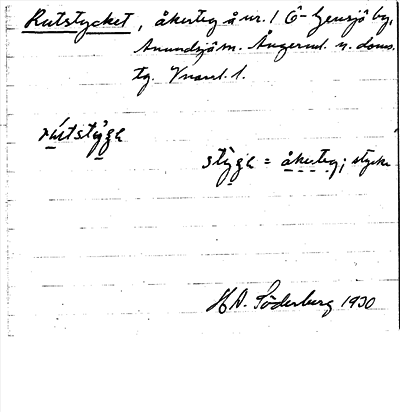 Rutstycket, åkerteg å nr. 1 Ö-Gensjö by,
Anundsjö sn. Ångerml. n. doms.
tg. Vnorrl. l.
rútstỳgʌ
stỳgʌ = åkerteg; stycke
H.A. Söderberg 1930